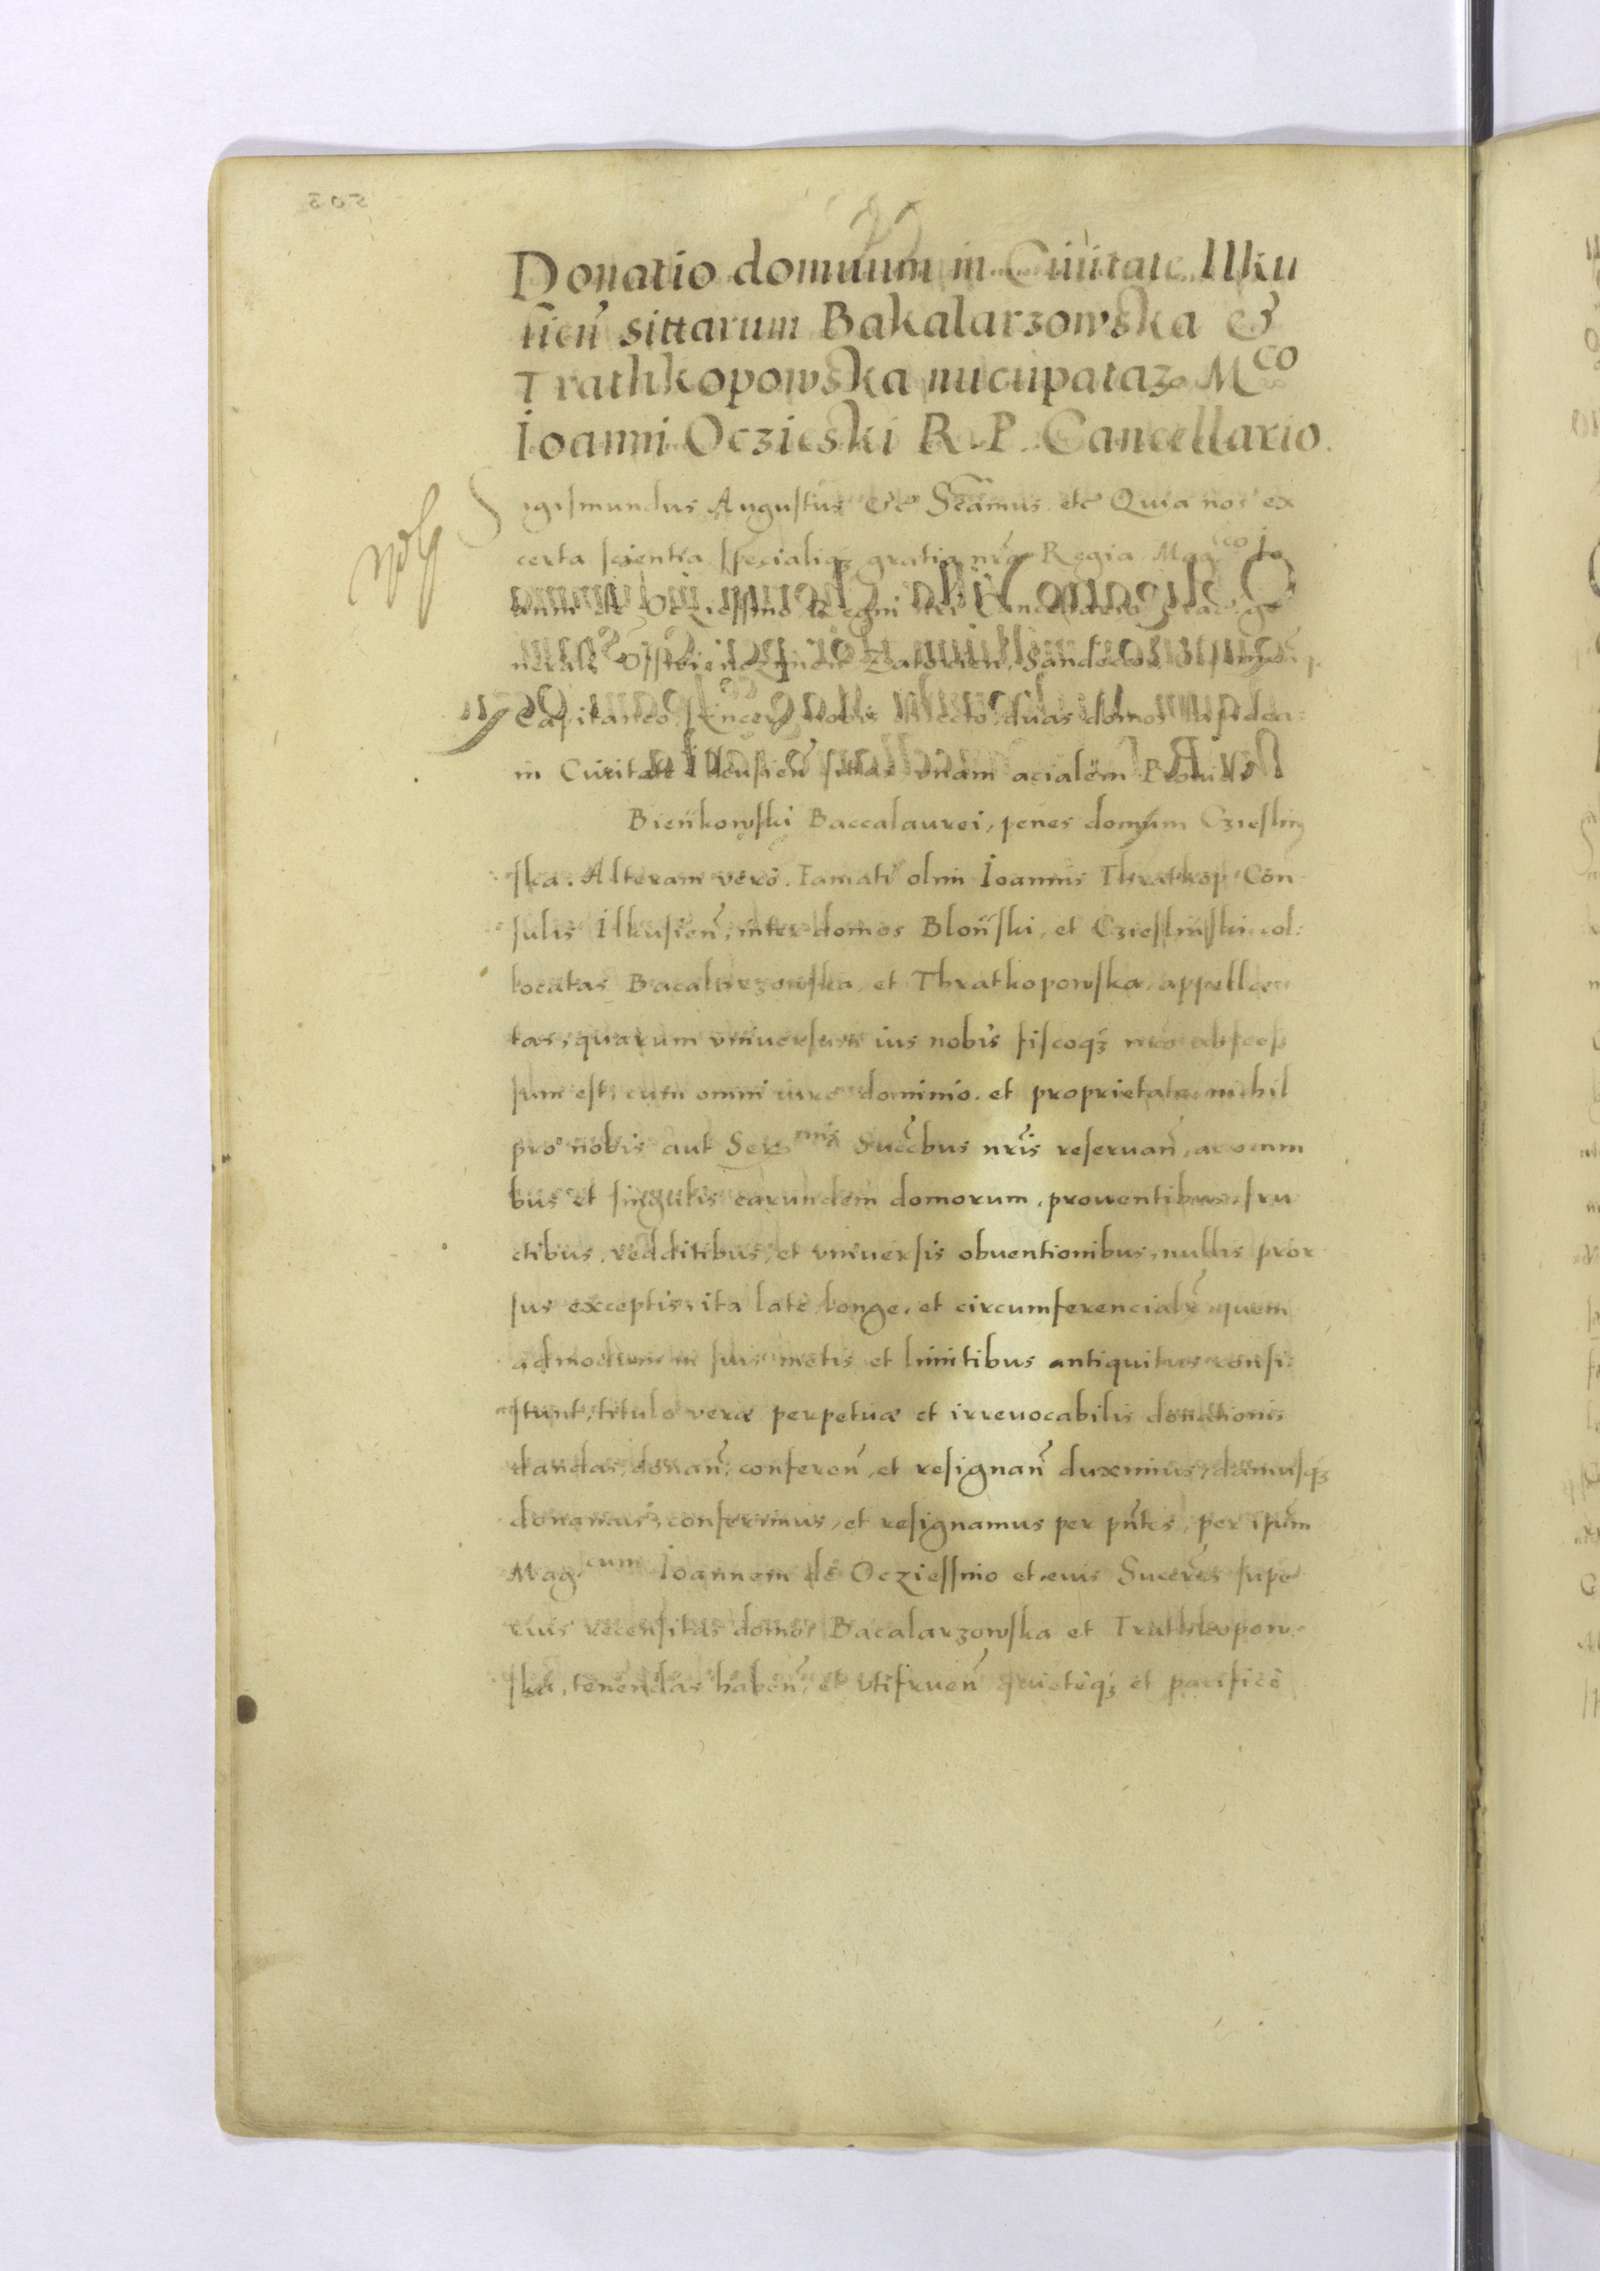 Donatio domuum in Ciuitate Ilku
sien̄ sittarum Bakalarzowska &
Trathkopowska nucupataꝝ M^co
Ioanni Oczieski R. P. Cancellario.
Sigismundus Augustus &c Sēamus etc Quia nos ex
certa scientia specialiqꝫ gratia nr̄a Regia Mag^co Io
Regni
Sandecen̄
Capitaneo, sincere nobis dilecto, duas domos lapideas
in Ciuitate Ilkusien̄ sittas vnam acialem Prouidi
Bieńkowski Baccalaurei, penes domum Cziesliń
ska. Alteram vero. Famati olim Ioannis Thratkop Con
sulis Ilkusien̄, inter domos Bloński, et Cziesliński col:
locatas Bacalarzowska, et Thratkopowska, appella
tas, quarum vniuersum ius nobis fiscoqꝫ nr̄o
sum est, cum omni iure dominio. et proprietate nichil
pro nobis aut Ser^mis Succ̄bus nr̄is reseruan̄, ac omni
bus et singulis earundem domorum, prouentibus, fru
ctibus, redditibus, et vniuersis obuentionibus, nullis pror
sus exceptis, ita late longe, et circumferencialr̄ quem
admodum in suis metis et limitibus antiquitus consi:
stunt, titulo veræ perpetuæ et irreuocabilis donationis
dandas, donan̄, conferen̄, et resignan̄ duximus, damusqꝫ
donamus, conferimus, et resignamus per pn̄tes, per ipūm
Mag^cum Ioannem de Ocziessino et eius Succr̄es supe
rius recensitas domos Bacalarzowska et Trathkopow
ska, tenendas haben̄, et vtifruen̄ quieteqꝫ et pacifice